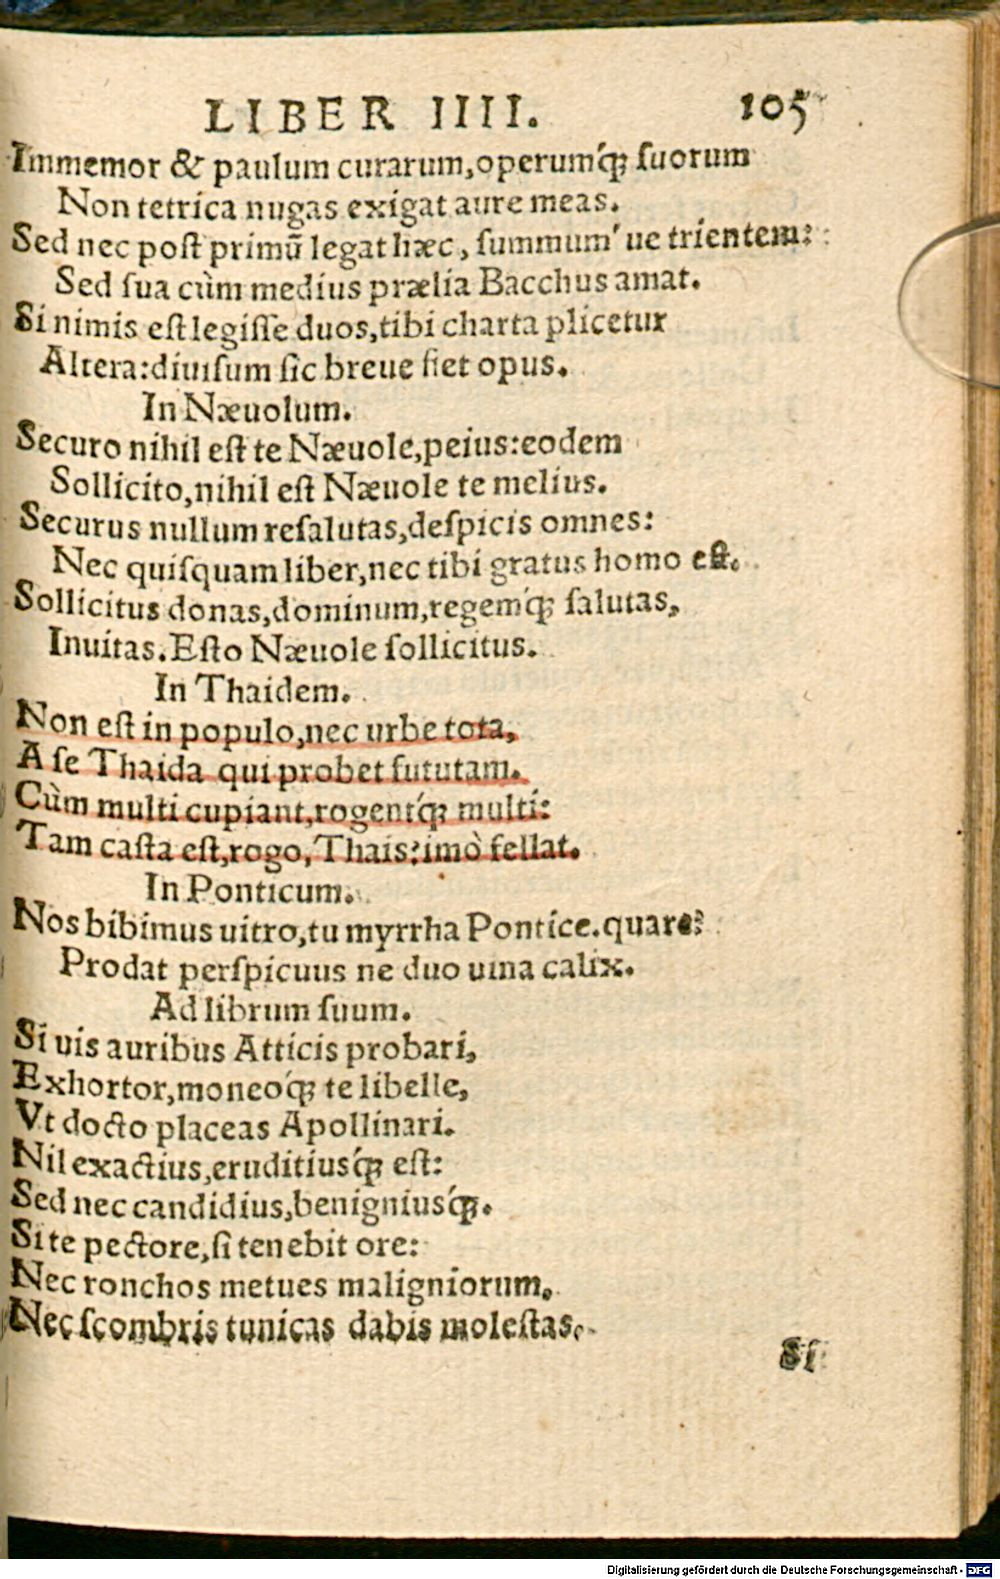 LIBER IIII. 105
Immemor & paulum curarum,operumq́ꝫ ſuorum
Non tetrica nugas exigat aure meas.
Sed nec poſt primū legat hæc, ſummum' ue trientem:
Sed ſua cùm medius prælia Bacchus amat.
Si nimis eſt legiſſe duos,tibi charta plicetur
Altera:diuiſum ſic breue fiet opus.
In Næuolum.
Securo nihil eſt te Næuole,peius:eodem
Sollicito,nihil eſt Næuole te melius.
Securus nullum reſalutas,deſpicis omnes:
Nec quiſquam liber,nec tibi gratus homo eſt.
Sollicitus donas,dominum,regemq́ꝫ ſalutas,
Inuitas.Eſto Næuole ſollicitus.
In Thaidem.
Non eſt in populo,nec urbe tota,
A ſe Thaida qui probet fututam.
Cùm multi cupiant,rogentq́ꝫ multi:
Tam caſta eſt,rogo,Thais:imò fellat.
In Ponticum.
Nos bibimus uitro,tu myrrha Pontice.quare?
Prodat perſpicuus ne duo uina calix.
Ad librum ſuum.
Si uis auribus Atticis probari,
Exhortor,moneoq́ꝫ te libelle,
Vt docto placeas Apollinari.
Nil exactius,eruditiusq́ꝫ eſt:
Sed nec candidius,benigniusq́ꝫ.
Si te pectore,ſi tenebit ore:
Nec ronchos metues maligniorum,
Nec ſcombris tunicas dabis moleſtas.
Si
Digitalisierung gefördert durch die Deutsche Forschungsgemeinschaft - DFG